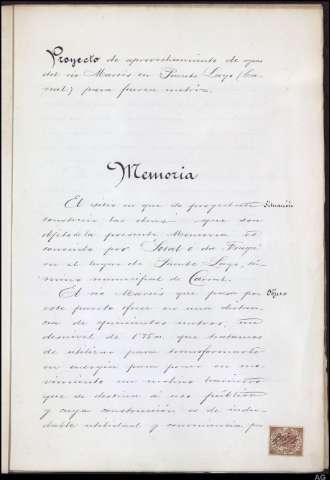 Proyecto de aprovechamiento de aguas
del río Maroüs en Puente Lago (Ca-
nal) para fuerza motriz.
Memoria
El sitio en que se proyectan Situación
construir las obras que son
objeto de la presente Memoria es
conocido por Total o da
en el lugar de Puente Lago, tér-
mino municipal de
El río que pasa por Objeto
este puesto ofrece en una distan-
cia de quinientos metros, un
desnivel de 1'75 m. que tratamos
de utilizar para transformarlo
en energía para poner en mo-
vimiento un molino harinero
que se destina á uso público
y cuya construcción es de indu-
dable utilidad y conveniencia por
AG